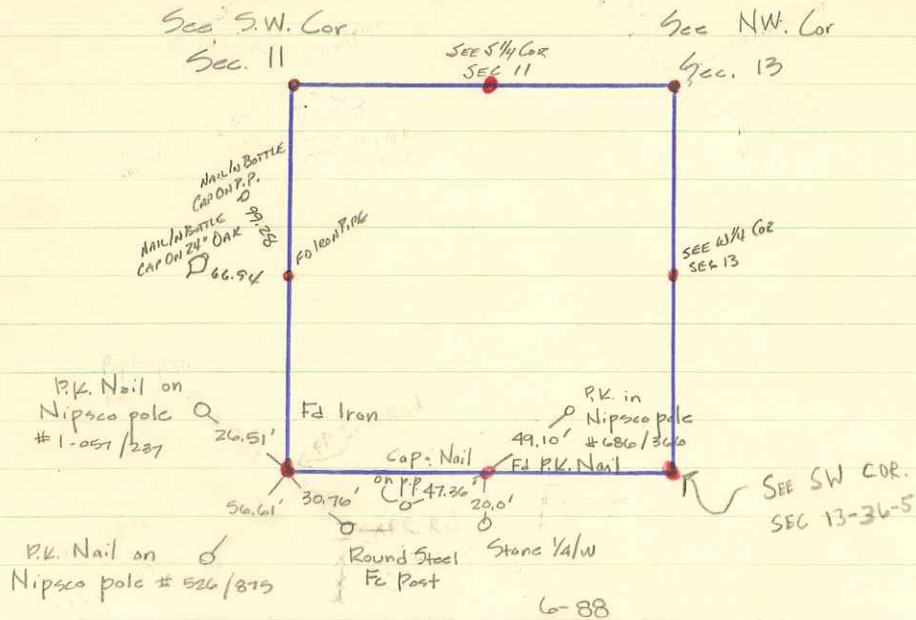 See S.W. Cor
Sec. 11
SEE S 1/4 COR
SEC 11
See NW. Cor
Sec. 13
NAIL IN BOTTLE
CAP ON P.P.
99.28
NAIL IN BOTTLE
CAP ON 24" OAK
66.94
FD IRON PIPE
SEE W 1/4 COR
SEC 13
P.K. Nail on
Nipsco pole
# 1-057/287
26.51'
Fd Iron
P.K. in
Nipsco pole
# 686/366
49.10'
Cap & Nail
on p.p.
47.36'
Fd P.K. Nail
56.61'
30.76'
20.0'
SEE SW COR.
SEC 13-36-5
P.K. Nail on
Nipsco pole # 526/875
Round Steel
Fc Post
Stone 1/4/W
6-88